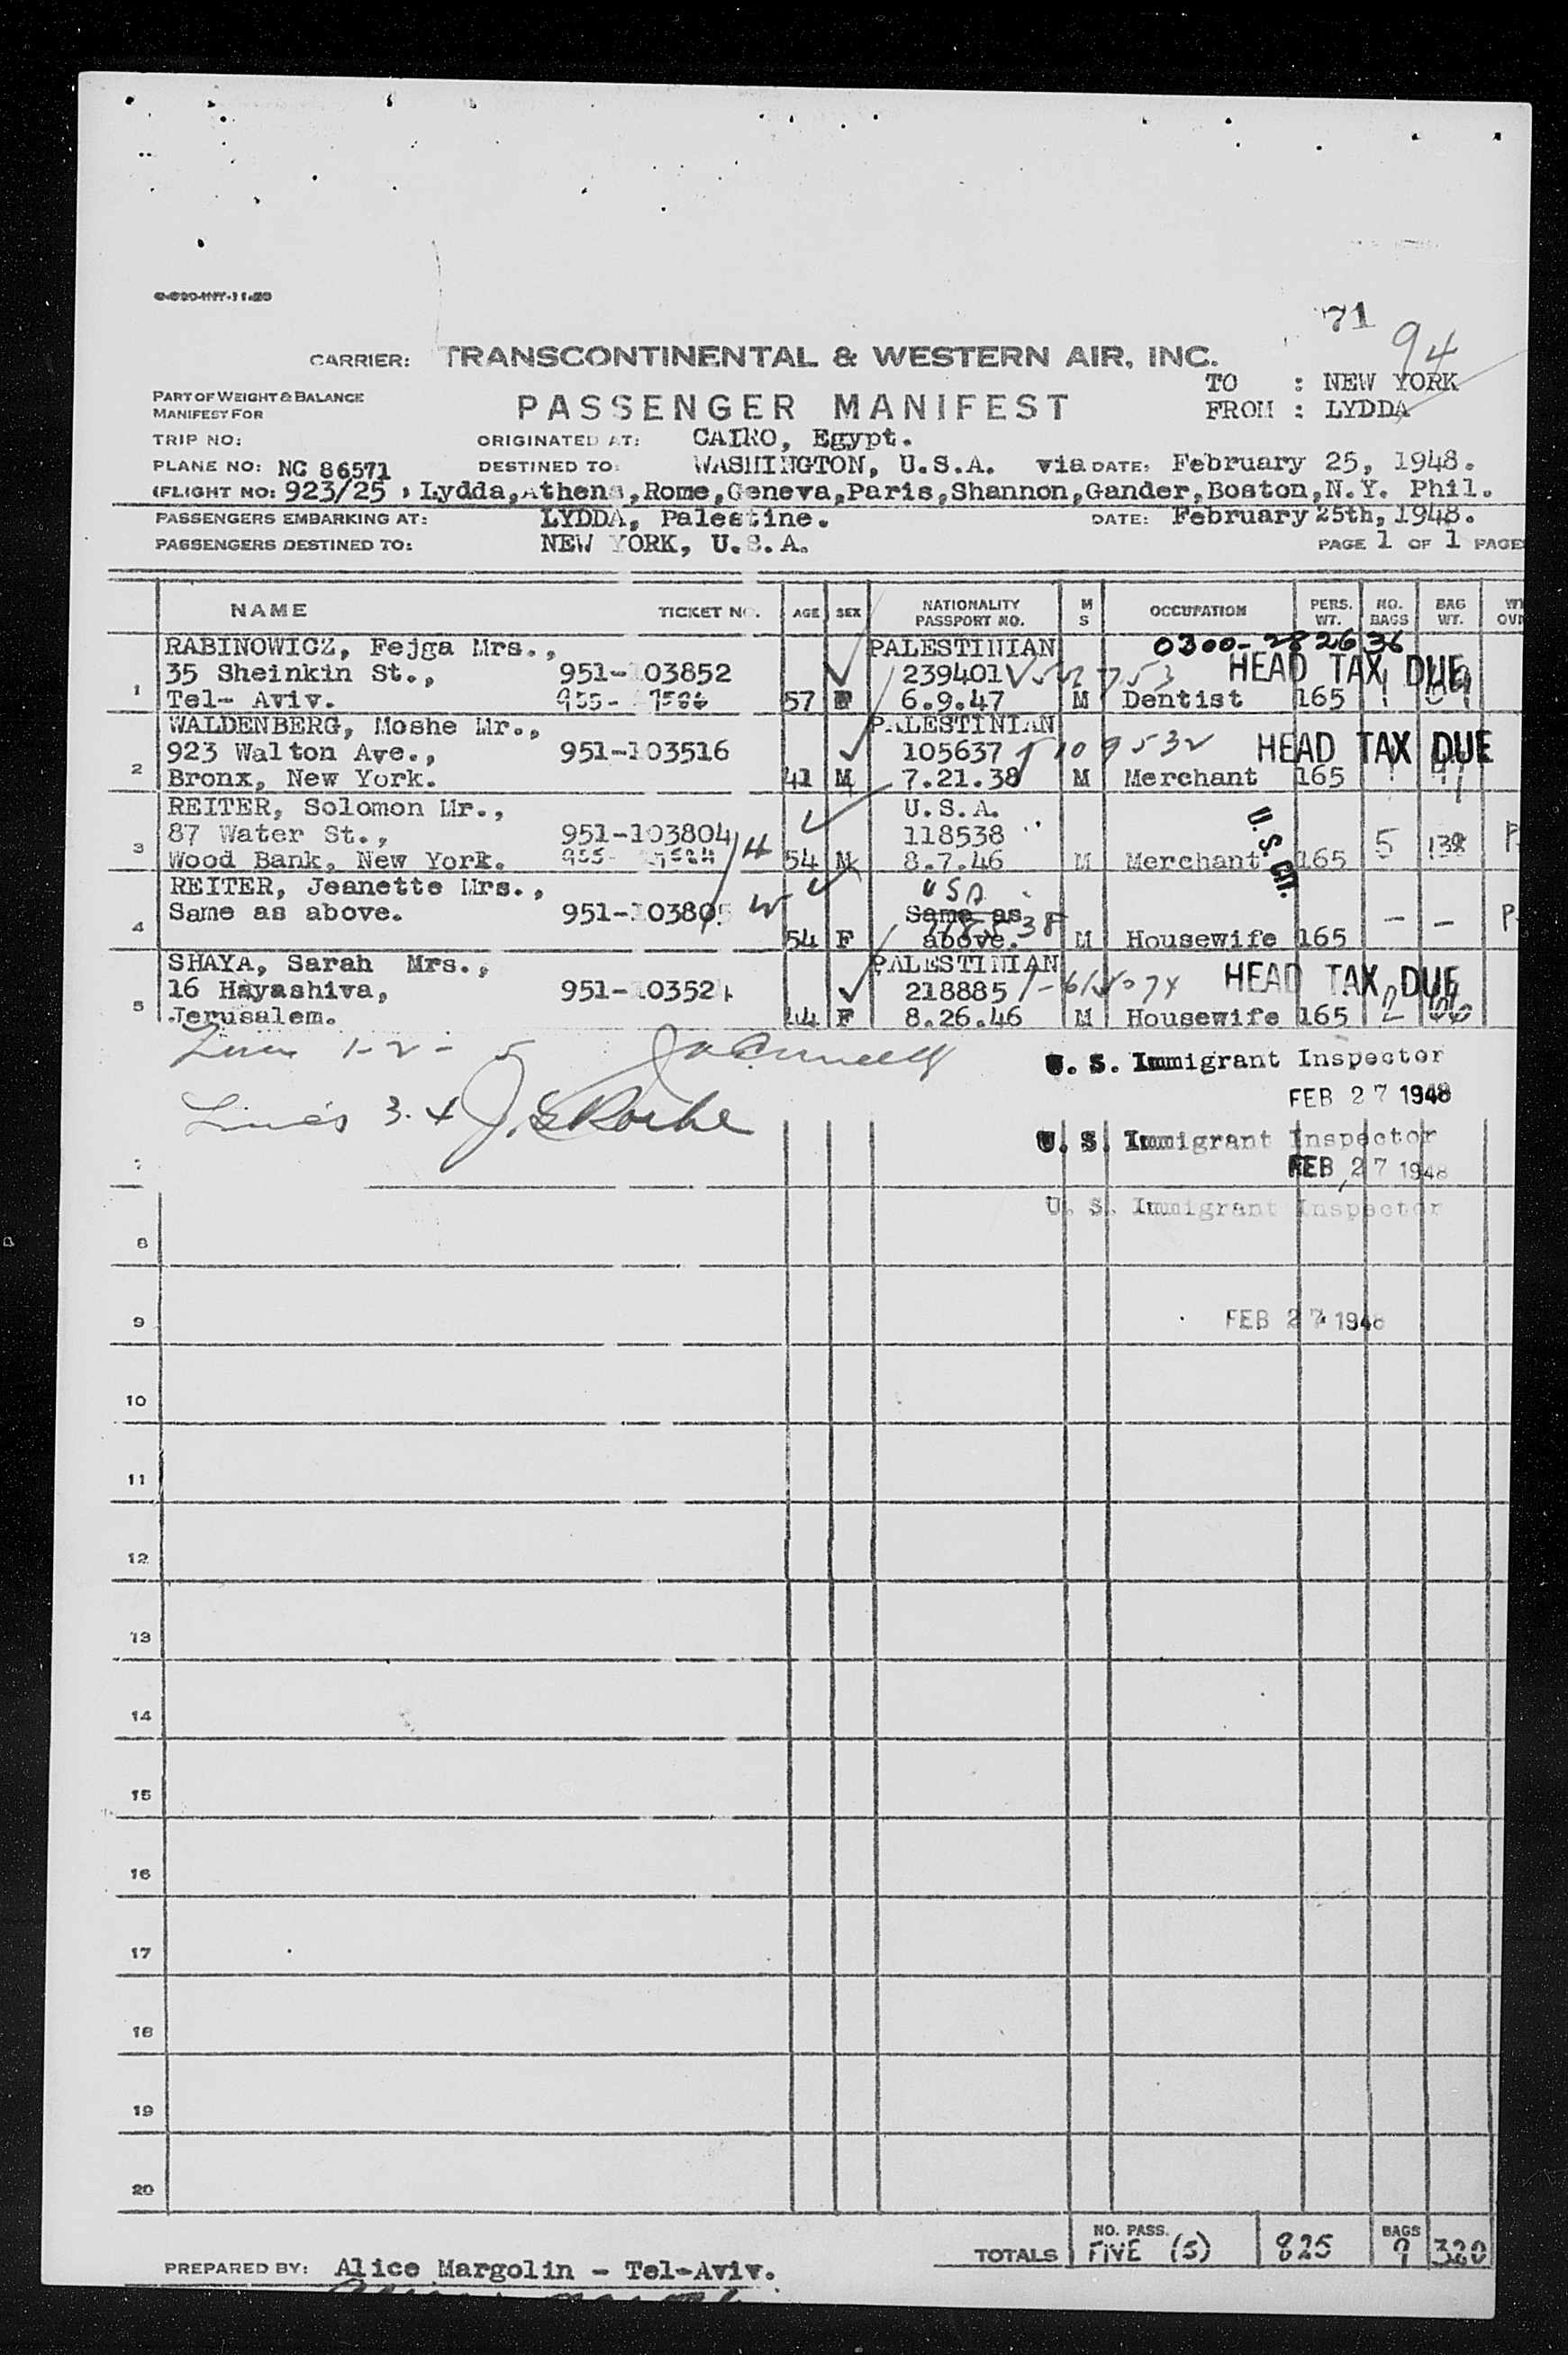 71
94
CARRIER: TRANSCONTINENTAL & WESTERN AIR, INC.
TO : NEW YORK
FROM : LYDDA
PART OF WEIGHT & BALANCE
MANIFEST FOR
PASSENGER MANIFEST
TRIP NO: ORIGINATED AT: CAIRO, Egypt.
PLANE NO: NC 86571 DESTINED TO: WASHINGTON, U.S.A. via DATE: February 25, 1948.
(FLIGHT NO: 923/25 , Lydda,Athens,Rome,Geneva,Paris,Shannon,Gander,Boston,N.Y. Phil.
PASSENGERS EMBARKING AT: LYDDA, Palestine. DATE: February 25th, 1948.
PASSENGERS DESTINED TO: NEW YORK, U.S.A. PAGE 1 OF 1 PAGE
NAME TICKET NO. AGE SEX NATIONALITY PASSPORT NO. M S OCCUPATION PERS. WT. NO. BAGS BAG WT.
RABINOWICZ, Fejga Mrs., PALESTINIAN 0300-282636
35 Sheinkin St., 951-103852 239401 HEAD TAX DUE
1 Tel- Aviv. 57 F 6.9.47 M Dentist 165 1
WALDENBERG, Moshe Mr., PALESTINIAN
923 Walton Ave., 951-103516 105637 HEAD TAX DUE
2 Bronx, New York. 41 M 7.21.38 M Merchant 165
REITER, Solomon Mr., U.S.A. U.S. CIT.
87 Water St., 951-103804 118538
3 Wood Bank, New York. H 54 M 8.7.46 M Merchant 165 5 138
REITER, Jeanette Mrs., USA
Same as above. 951-103805 W Same as 118538
4 54 F above. M Housewife 165 - -
SHAYA, Sarah Mrs., PALESTINIAN
16 Hayashiva, 951-103524 218885 HEAD TAX DUE
5 Jerusalem. 44 F 8.26.46 M Housewife 165 2
Lines 1-2- 5
U. S. Immigrant Inspector
FEB 27 1948
Lines 3.4
U. S. Immigrant Inspector
FEB 27 1948
7
U. S. Immigrant Inspector
8
9 FEB 27 1948
10
11
12
13
14
15
16
17
18
19
20
TOTALS NO. PASS. FIVE (5) 825 BAGS 9 320
PREPARED BY: Alice Margolin - Tel-Aviv.